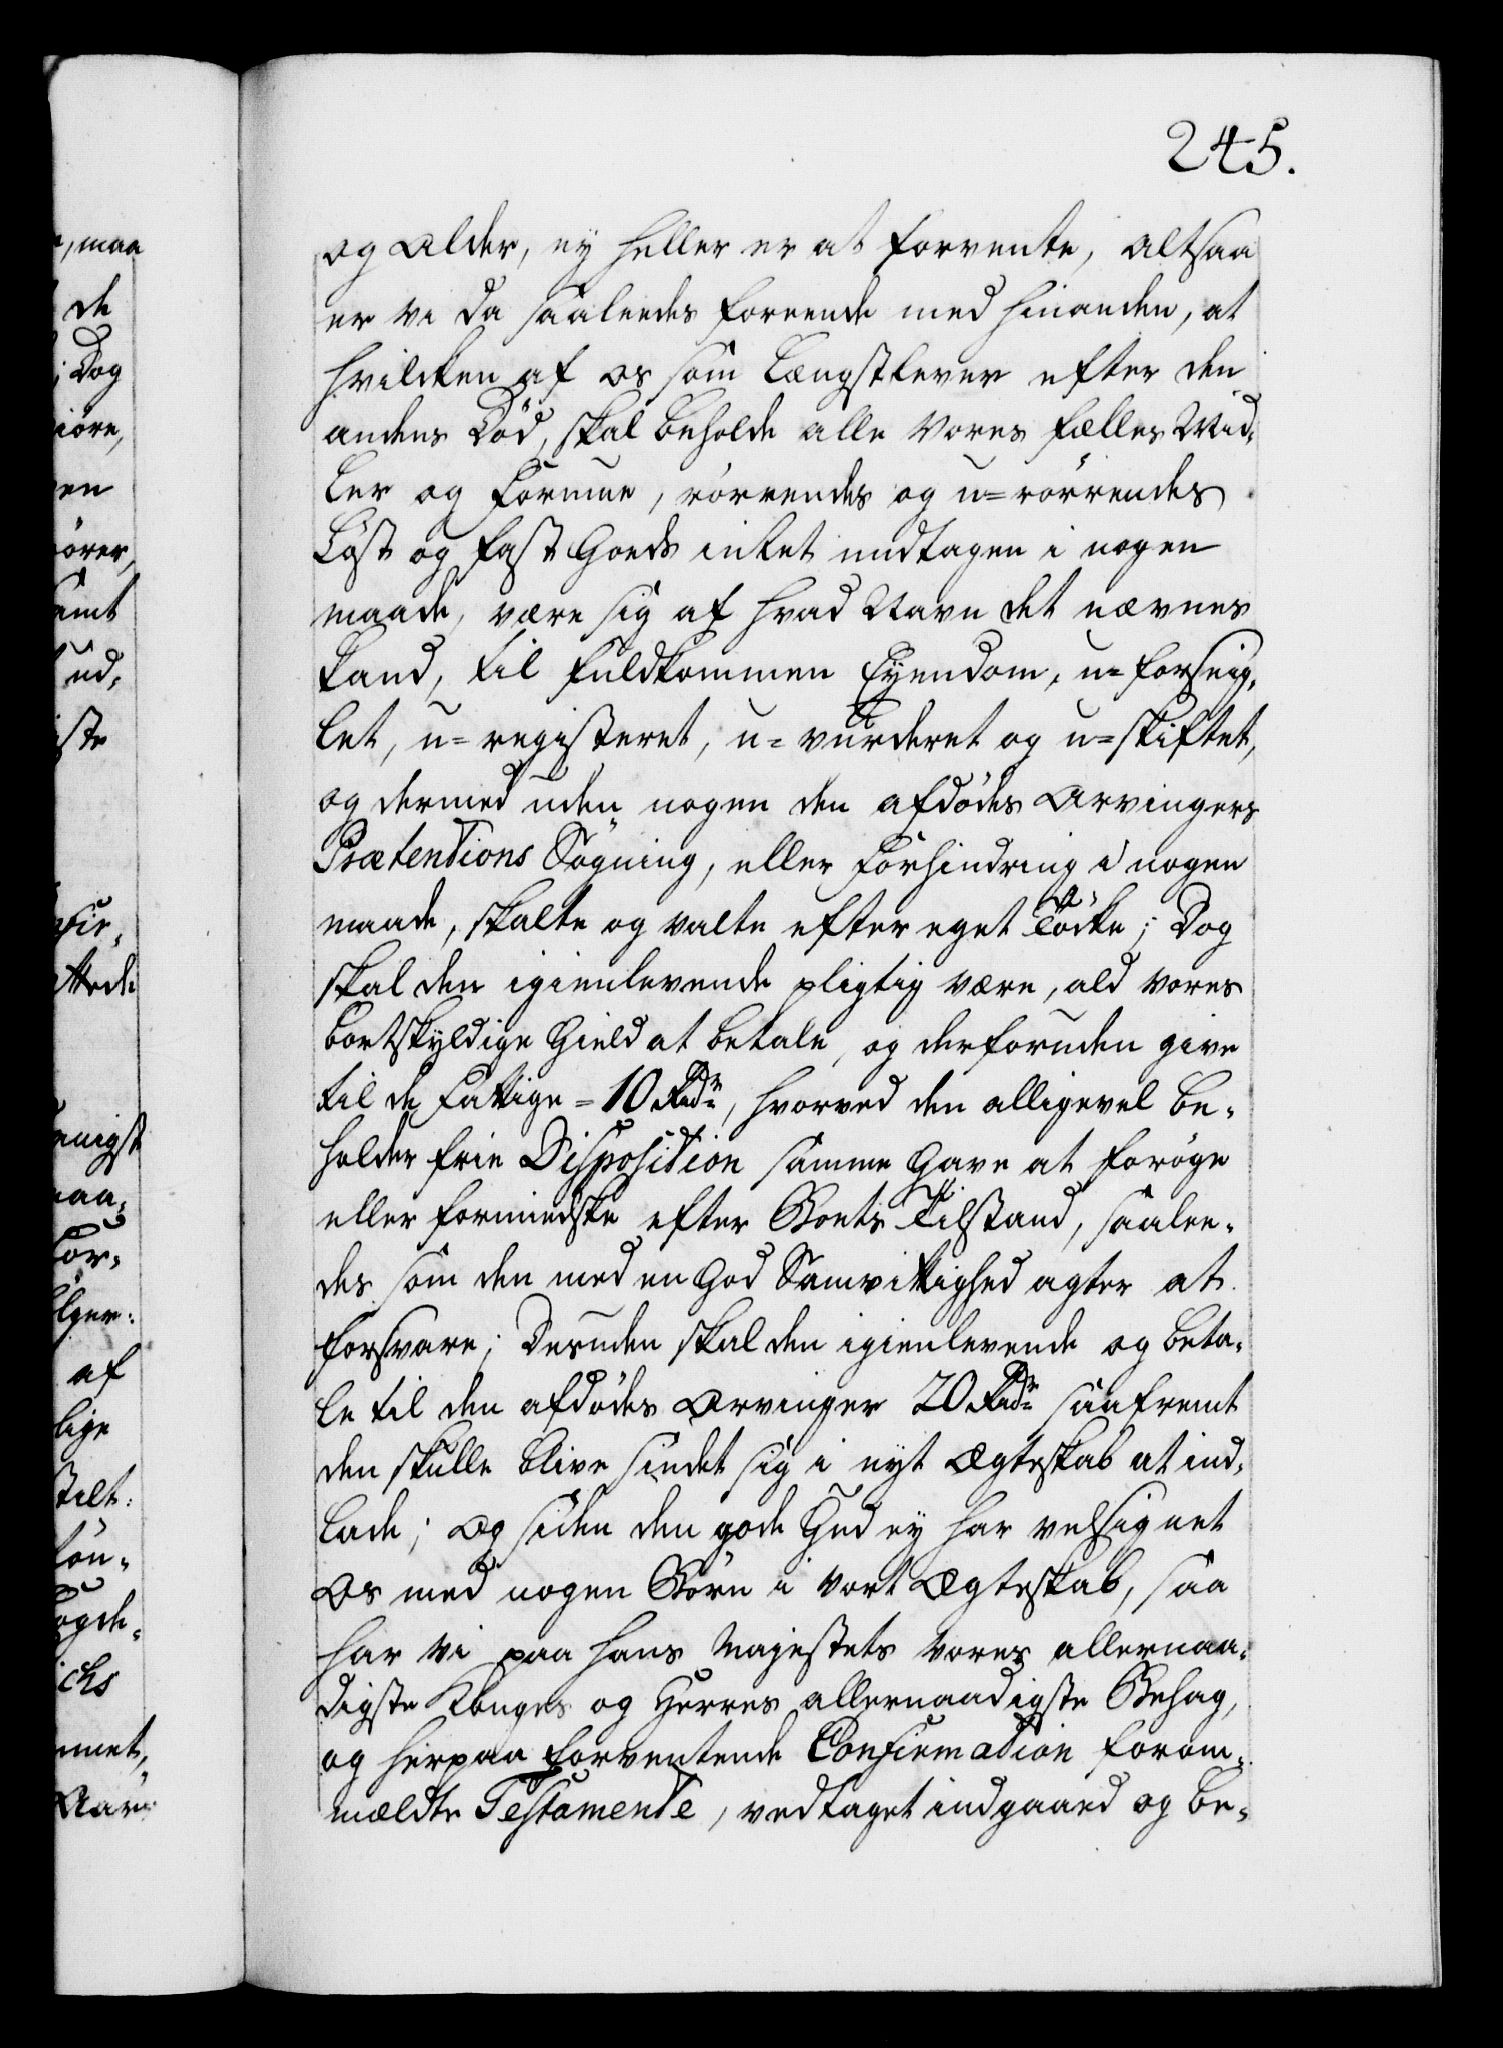 245.
og Alder, ey heller er at forvente, altsaa
er vi da saaleedes foreende med hinanden, at
hvilcken af os som længstlever efter den
andens Död, skal beholde alle vores fælles Mid-
ler og Formue, rörendes og u=rörrendes
Löst og fast Goeds intet undtagen i nogen
maade, være sig af hvad Navn det nævnes
kand, til fuldkommen Eyendom, u=forseig-
let, u=registeret, u=vurderet og u=skiftet,
og dermed uden nogen den afdödes Arvingers
Prætentions Sögning, eller Forhindring i nogen
maade, skalte og valte efter eget Töcke; Dog
skal den igienlevende pligtig være, ald vores
bortskyldige Gield at betale, og derforuden give
til de Fattige = 10 Rdr, hvorved den alligevel be-
holder frie Disposition samme Gave at foröge
eller formindske efter Boets Tilstand, saalee-
des som den med en God Samvittighed agter at
forsvare; Desuden skal den igienlevende og beta-
le til den afdödes Arvinger 20 Rdr saafremt
den skulle blive sindet sig i nyt Ægteskab at ind-
lade; Og siden den gode Gud ey har velsignet
Os med nogen Börn i vort Ægteskab, saa
har vi paa Hans Majestets vores allernaa-
digste Konges og Herres allernaadigste Behag,
og herpaa forventende Confirmation forom-
mældte Testamente, vedtaget indgaaed og be-
, maa
de
; Dog
iöre,
en
örer,
emt
ud-
iste
af
lige
ichs